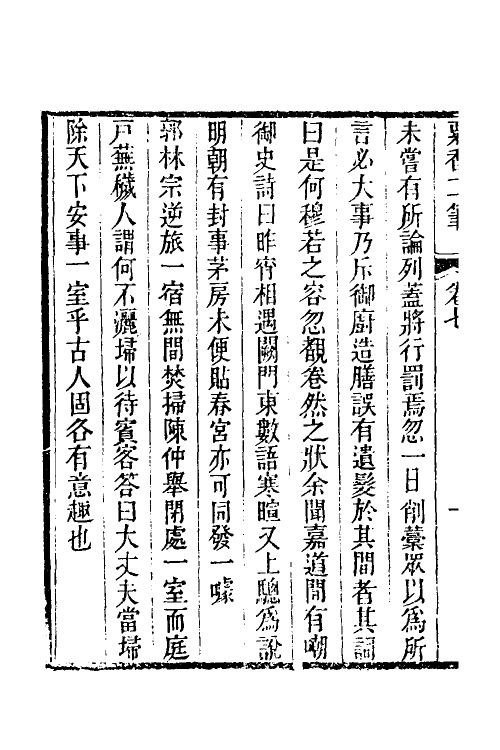 粟香二筆 卷七
未嘗有所論列蓋將行罰焉忽一日削藁眾以為所
言必大事乃斥御廚造膳誤有遺髮於其間者其詞
曰是何穆若之容忽覩卷然之狀余聞嘉道間有嘲
御史詩曰昨宵相遇闕門東數語寒暄又上驄為說
明朝有封事茅房未便貼春宮亦可同發一噱
郭林宗逆旅一宿無間焚掃陳仲舉閉處一室而庭
戶蕪穢人謂何不灑埽以待賓客答曰大丈夫當埽
除天下安事一室乎古人固各有意趣也